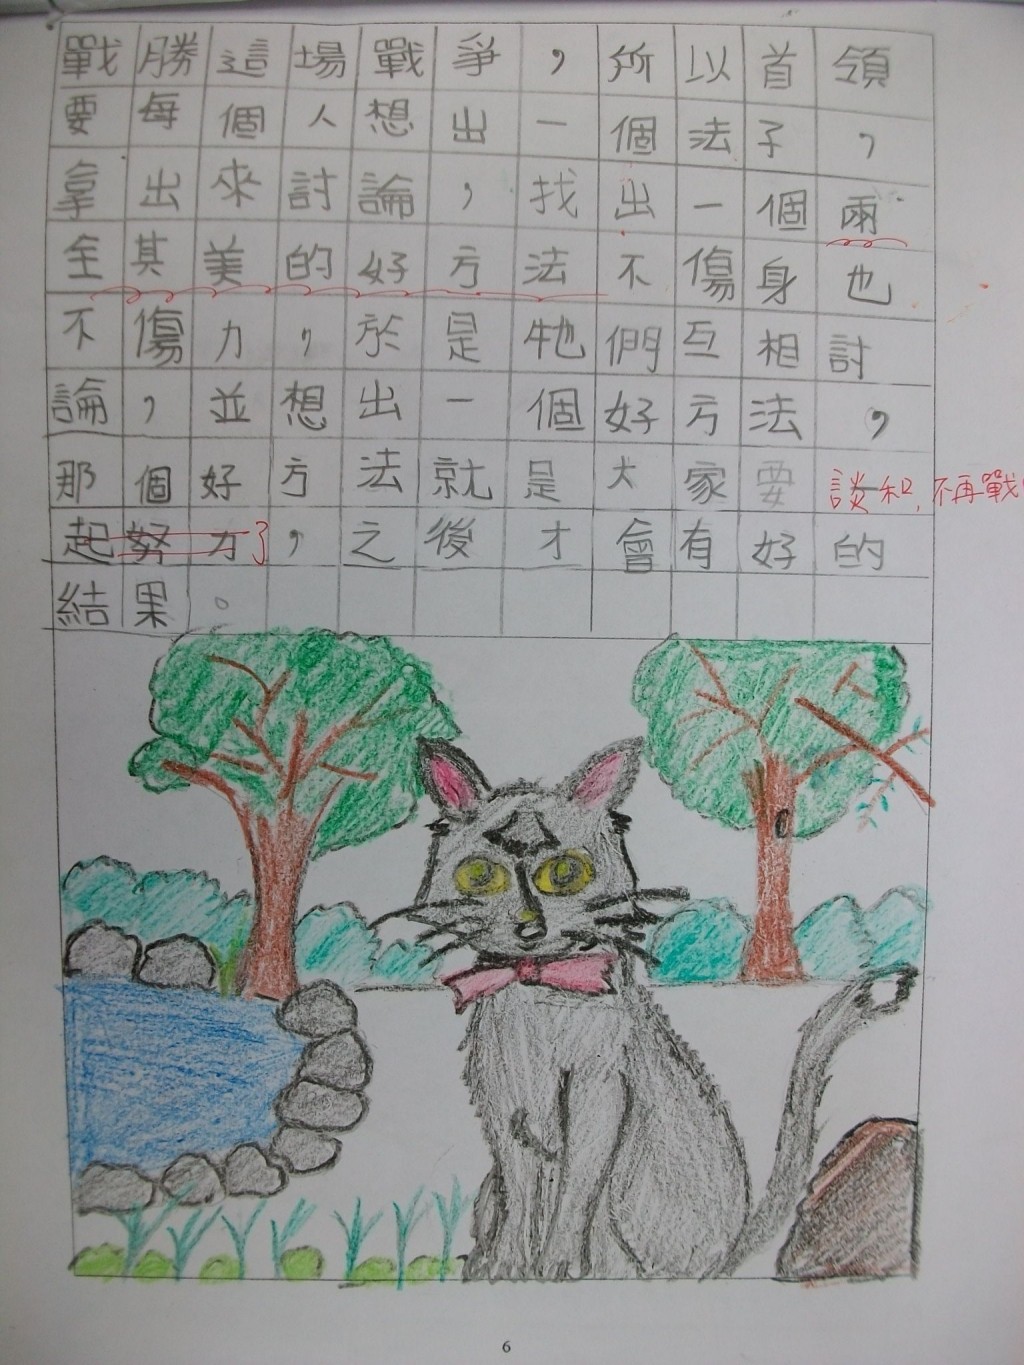 戰勝這場戰爭,所以首領
要每個人想出一個法子,
拿出來討論,找出一個兩
全其美的好方法不傷身也
不傷力,於是牠們互相討
論,並想出一個好方法,
那個好方法就是大家要談和,不再戰
起努力了,之後才會有好的
結果。
6